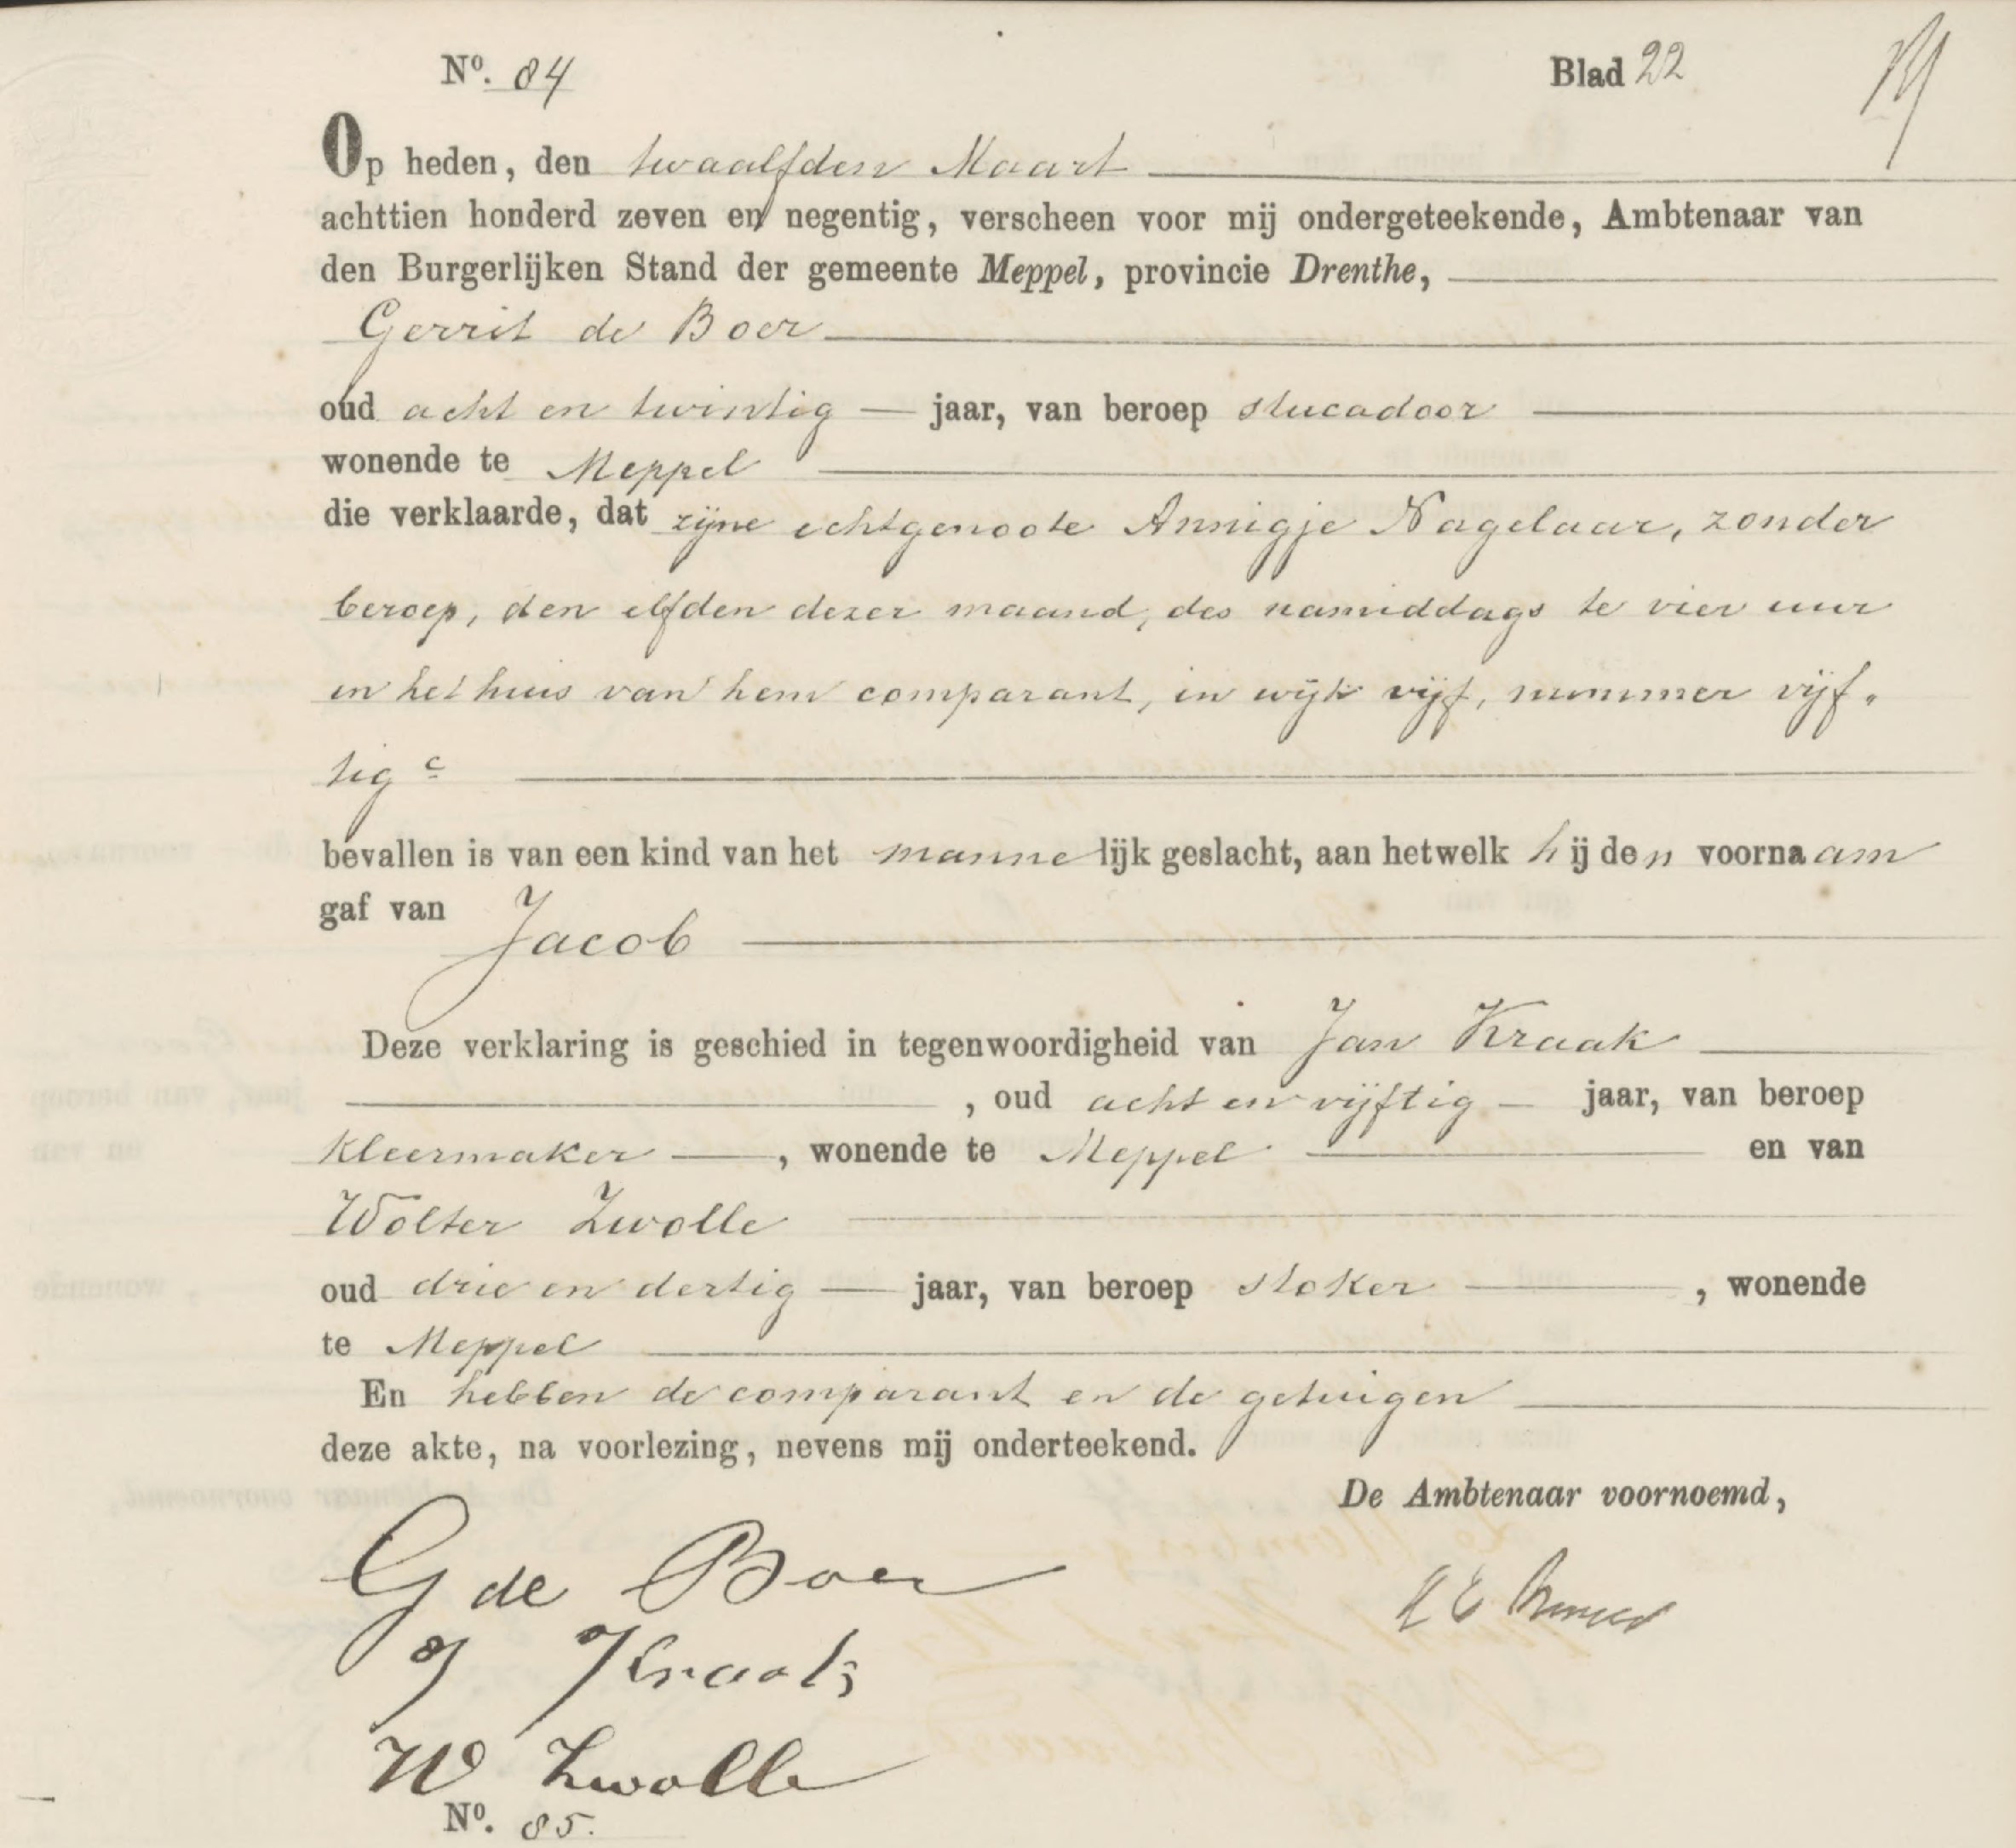 Nº. 84 Blad 22
Op heden, den twaalfden Maart
achttien honderd zeven en negentig, verscheen voor mij ondergeteekende, Ambtenaar van
den Burgerlijken Stand der gemeente Meppel, provincie Drenthe,
Gerrit de Boer
oud acht en twintig — jaar, van beroep stucadoor
wonende te Meppel
die verklaarde, dat zijne echtgenoote Annigje Nagelaar, zonder
beroep, den elfden dezer maand, des namiddags te vier uur
in het huis van hem comparant, in wijk vijf, nummer vijf„
tig c
bevallen is van een kind van het mannelijk geslacht, aan hetwelk hij den voornaam
gaf van Jacob
Deze verklaring is geschied in tegenwoordigheid van Jan Kraak
, oud acht en vijftig — jaar, van beroep
kleermaker —, wonende te Meppel en van
Wolter Zwolle
oud drie en dertig — jaar, van beroep stoker —, wonende
te Meppel
En hebben de comparant en de getuigen
deze akte, na voorlezing, nevens mij onderteekend.
De Ambtenaar voornoemd,
G de Boer
J Kraak
W Zwolle
Nº. 85.